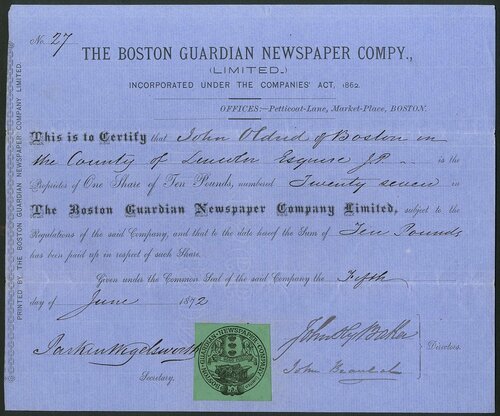 No. 27
THE BOSTON GUARDIAN NEWSPAPER COMPY.,
(LIMITED.)
INCORPORATED UNDER THE COMPANIES' ACT, 1862.
OFFICES:—Petticoat-Lane, Market-Place, BOSTON.
This is to Certify that John Oldrid of Boston in
the County of Lincoln Esquire J.P. is the
Proprietor of One Share of Ten Pounds, numbered Twenty seven in
The Boston Guardian Newspaper Company Limited, subject to the
Regulations of the said Company, and that to the date hereof the Sum of Ten Pounds
has been paid up in respect of such Share.
Given under the Common Seal of the said Company the Fifth
day of June 1872
BOSTON GUARDIAN NEWSPAPER COMPANY
John Baker
Directors.
John
Secretary.
PRINTED BY THE BOSTON GUARDIAN NEWSPAPER COMPANY LIMITED.